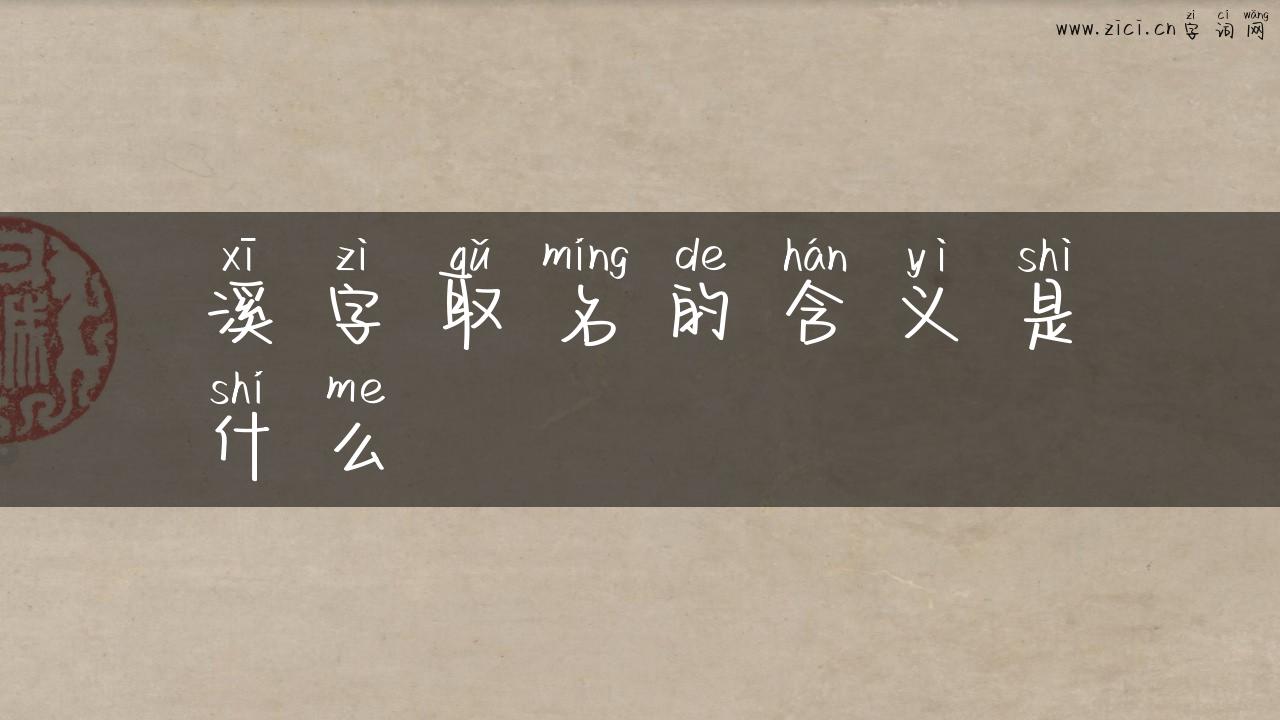 zì cí wǎng
www.zici.cn字词网
xī zì qǔ míng de hán yì shì
溪字取名的含义是
shí me
什么